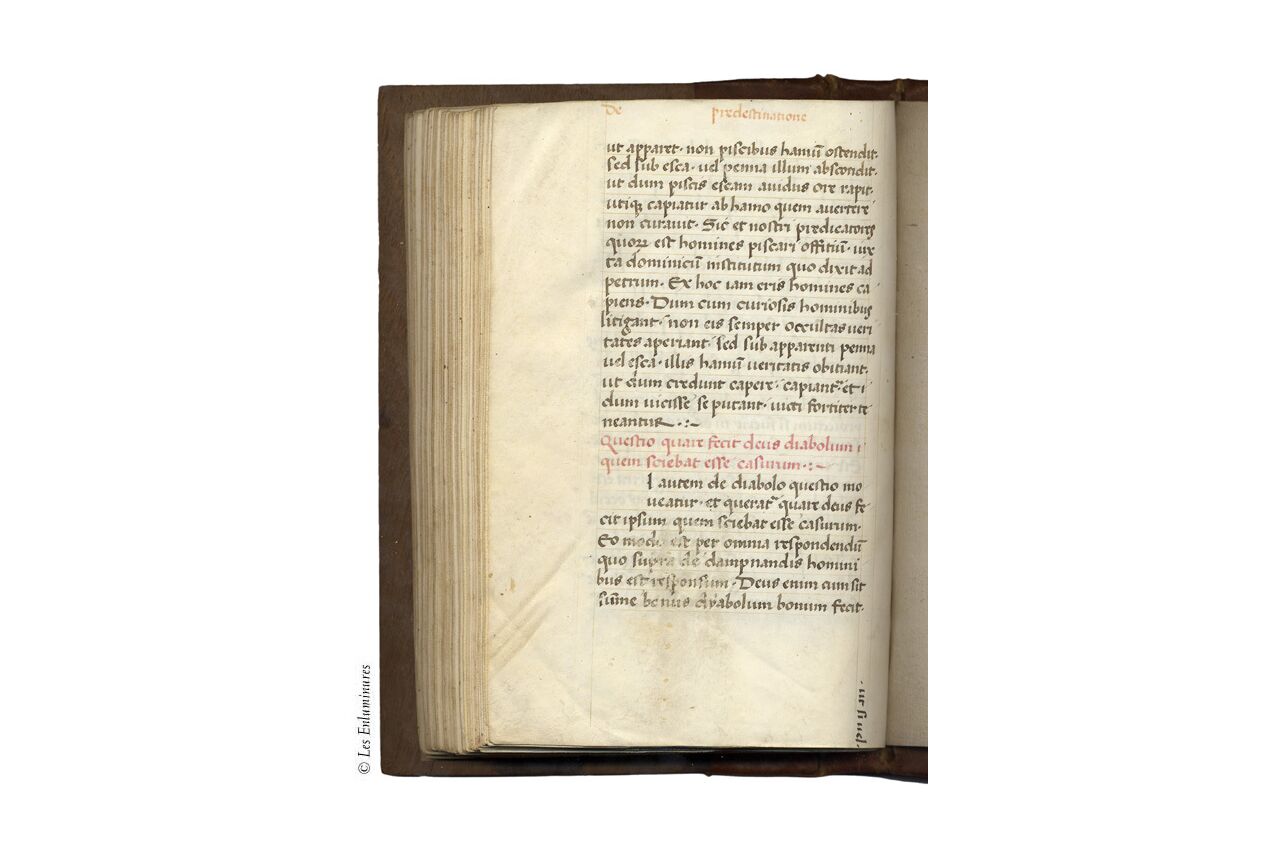 De predestinatione
ut apparet · non piscibus hamū ostendit·
sed sub esca · uel penna illum abscondit·
ut dum piscis escam auidus ore rapit·
utiqꝫ capiatur ab hamo quem auertere
non curauit · Sic et nostri predicatores
quoꝝ est homines piscari offitiū · iux
ta dominicū institutum quo dixit ad
petrum · Ex hoc iam eris homines ca
piens · Dum cum curiosis hominibus
litigant · non eis semper occultas ueri
tates aperiant · sed sub apparenti penna
uel esca · illis hamū ueritatis obitiant·
ut dum credunt capere · capiant᷑ · et i
dum uicisse se putant · uicti fortiter te
neantur · : ~
Questio quare fecit deus diabolum
quem sciebat esse casurum · : ~
I autem de diabolo questio mo
ueatur · et querat᷑ quare deus fe
cit ipsum quem sciebat esse casurum·
Eo modo est per omnia respondendū
quo supra de dampnandis homini
bus est responsum · Deus enim cum sit
sūme bonus dyabolum bonum fecit·
· ut si uel ·
© Les Enluminures